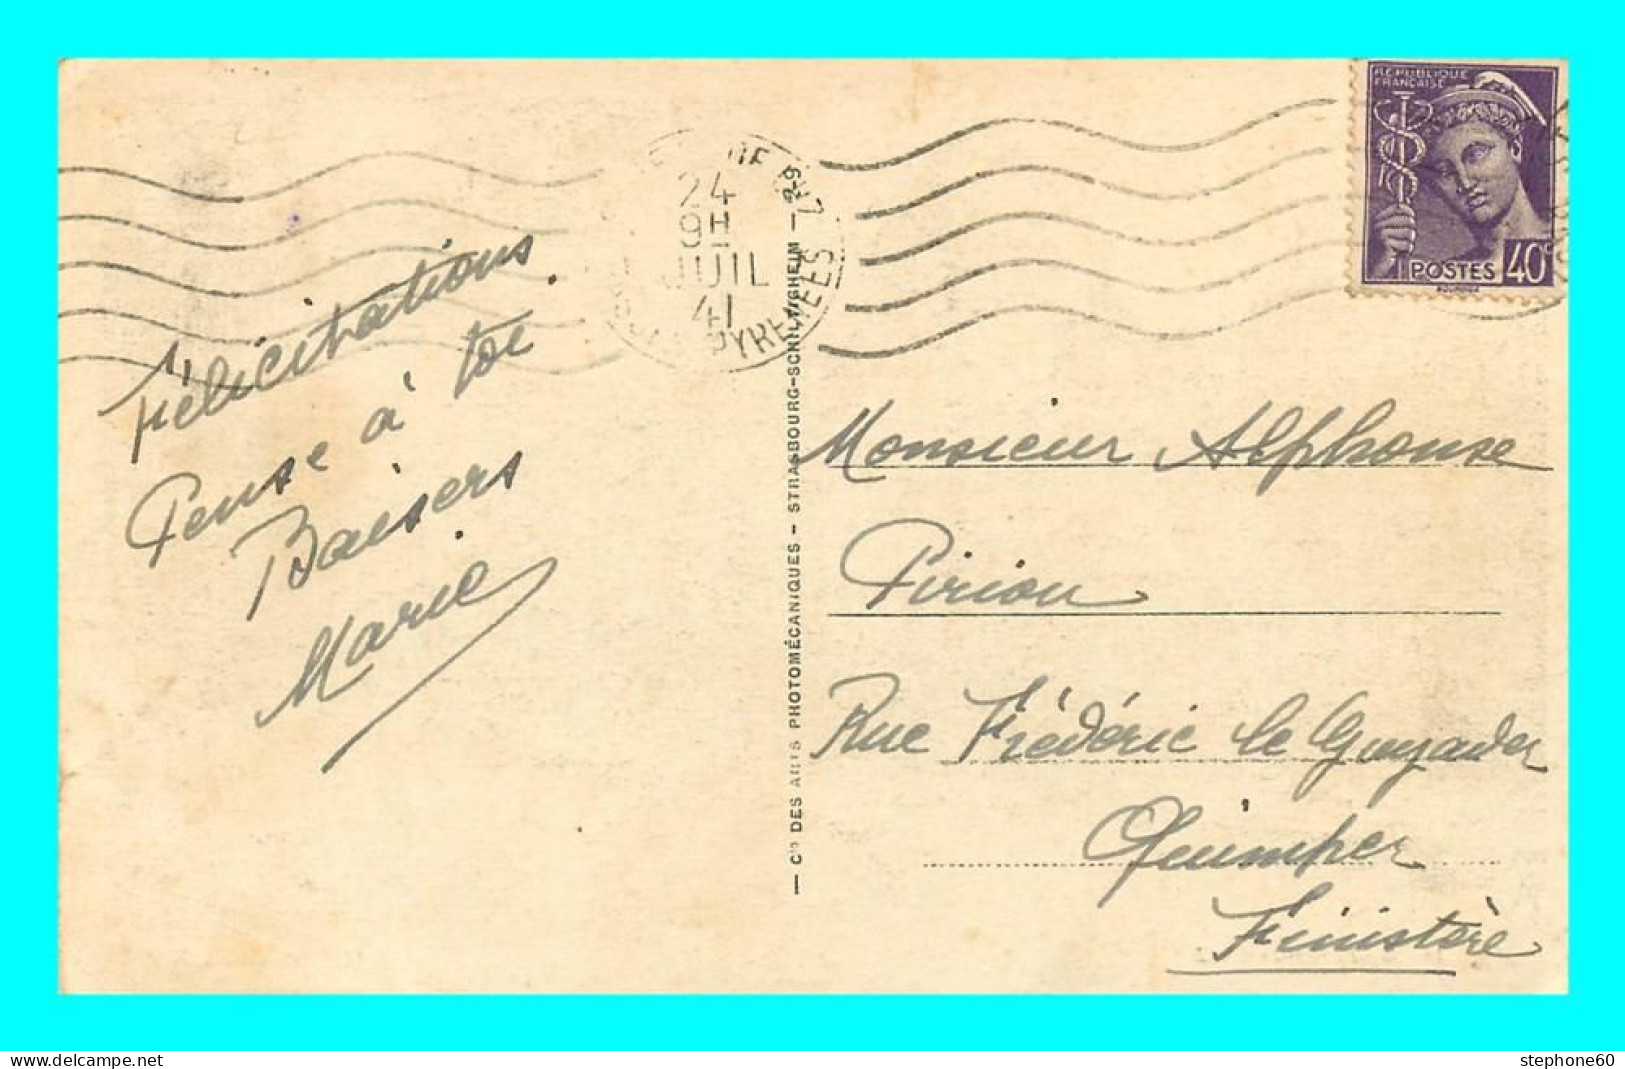 RÉPUBLIQUE
FRANÇAISE
POSTES 40c
24
9H
JUIL
41
PYRENEES
Félicitations.
Pense à toi
Baisers
Marie
— Cie DES ARTS PHOTOMÉCANIQUES - STRASBOURG-SCHILTIGHEIM —
Monsieur Alphonse
Piriou
Rue Frédéric le Guyader
Quimper
Finistère
stephone60